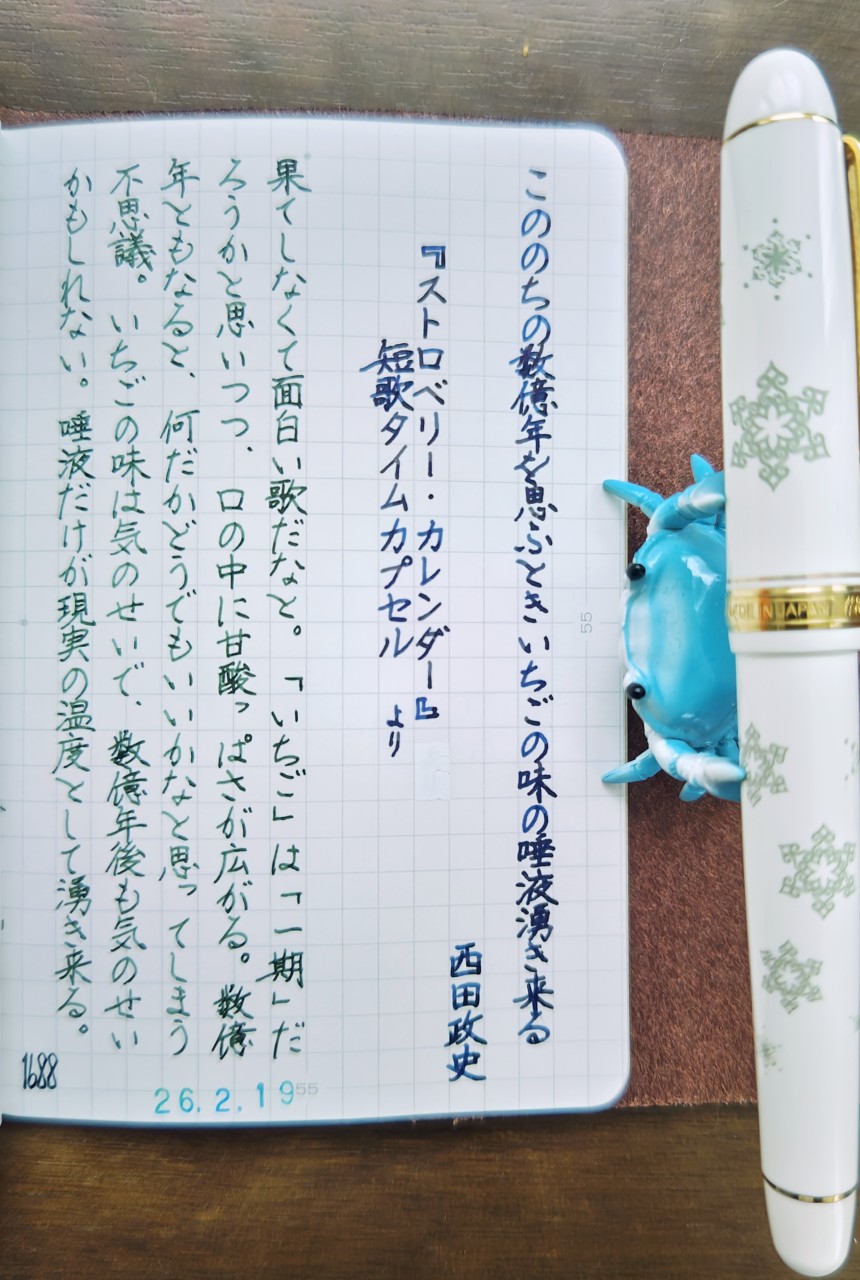 こののちの数億年を思ふときいちごの味の唾液湧き来る
西田政史
『ストロベリー・カレンダー』
短歌タイムカプセル より
果てしなくて面白い歌だなと。「いちご」は「一期」だ
ろうかと思いつつ、口の中に甘酸っぱさが広がる。数億
年ともなると、何だかどうでもいいかなと思ってしまう
不思議。いちごの味は気のせいで、数億年後も気のせい
かもしれない。唾液だけが現実の温度として湧き来る。
1688
26.2.19
55
55
IN JAPAN